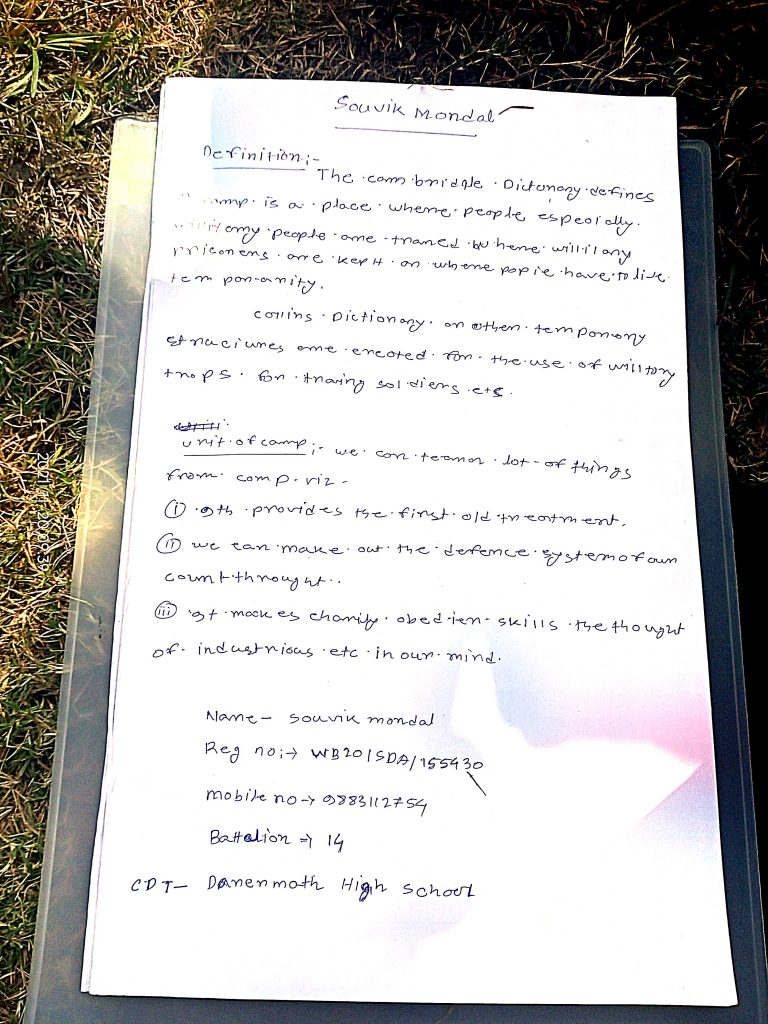 Souvik Mondal
Definition:-
The cambridgle Dictonary defines
camp is a place where people especially
people are traned
priconers are kept or where pople have to live
temporarity.
Collins Dictionary. or other temporory
structures are erected for the use of willtory
trops for traing soldiers etc.
Unit of camp:- we can lot of things
from camp. viz -
(i) provides the first old treatment.
(ii) we can make out the defence system of our
count throught..
(iii) gt mackes charity obedien skills the thought
of industrious etc in our mind.
Name - Souvik mondal
Reg no:→ WB20/SDA/155430
mobile no → 9883112754
Battalion → 14
CDT - High School